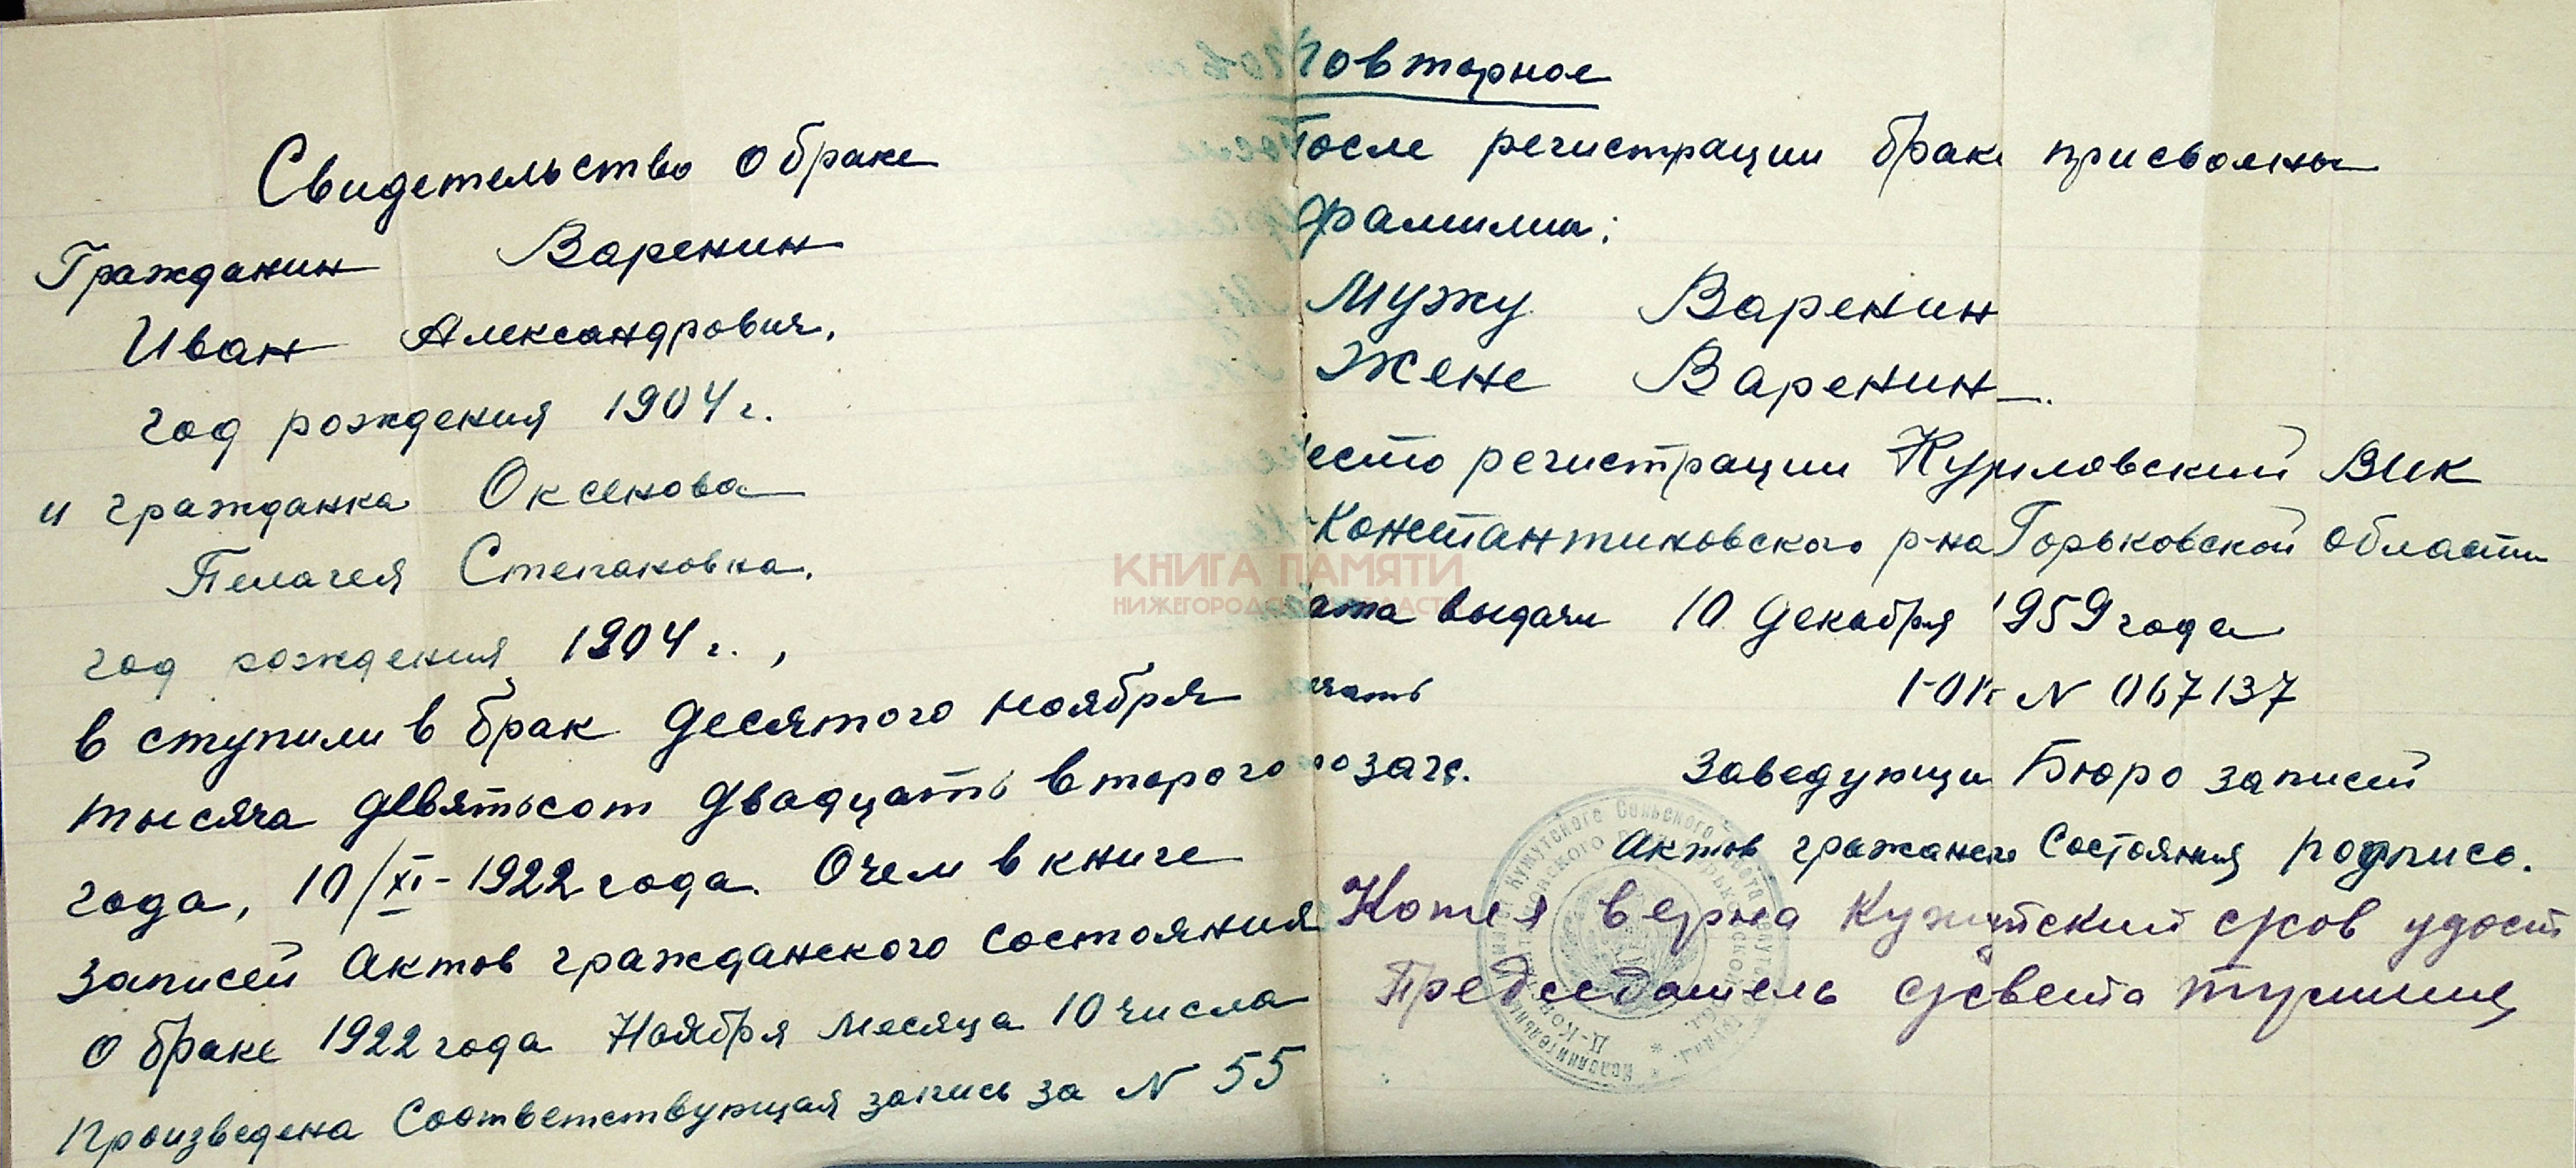 Свидетельство о браке
Гражданин Варенин
Иван Александрович.
год рождения 1904 г.
и гражданка Оксенова
Пелагея Степановна.
год рождения 1904 г.,
в ступили в брак десятого ноября
тысяча девятьсот двадцать второго
года, 10/XI-1922 года. Очем в книге
записей актов гражданского состояния
о браке 1922 года Ноября месяца 10 числа
произведена соответствующая запись за N 55
Повторное
После регистрации брака присвоены
фамилии:
Мужу Варенин
Жене Варенин
место регистрации ВИК
-Константиновского р-на Горьковской области
дата выдачи 10 декабря 1959 года
N 067137
печать
загс. Заведующи Бюро записей
Актов Состояния подпись.
Копия верна Кужутский с/сов удост
Председатель с/совета
КНИГА ПАМЯТИ
НИЖЕГОРОДСКОЙ ОБЛАСТИ